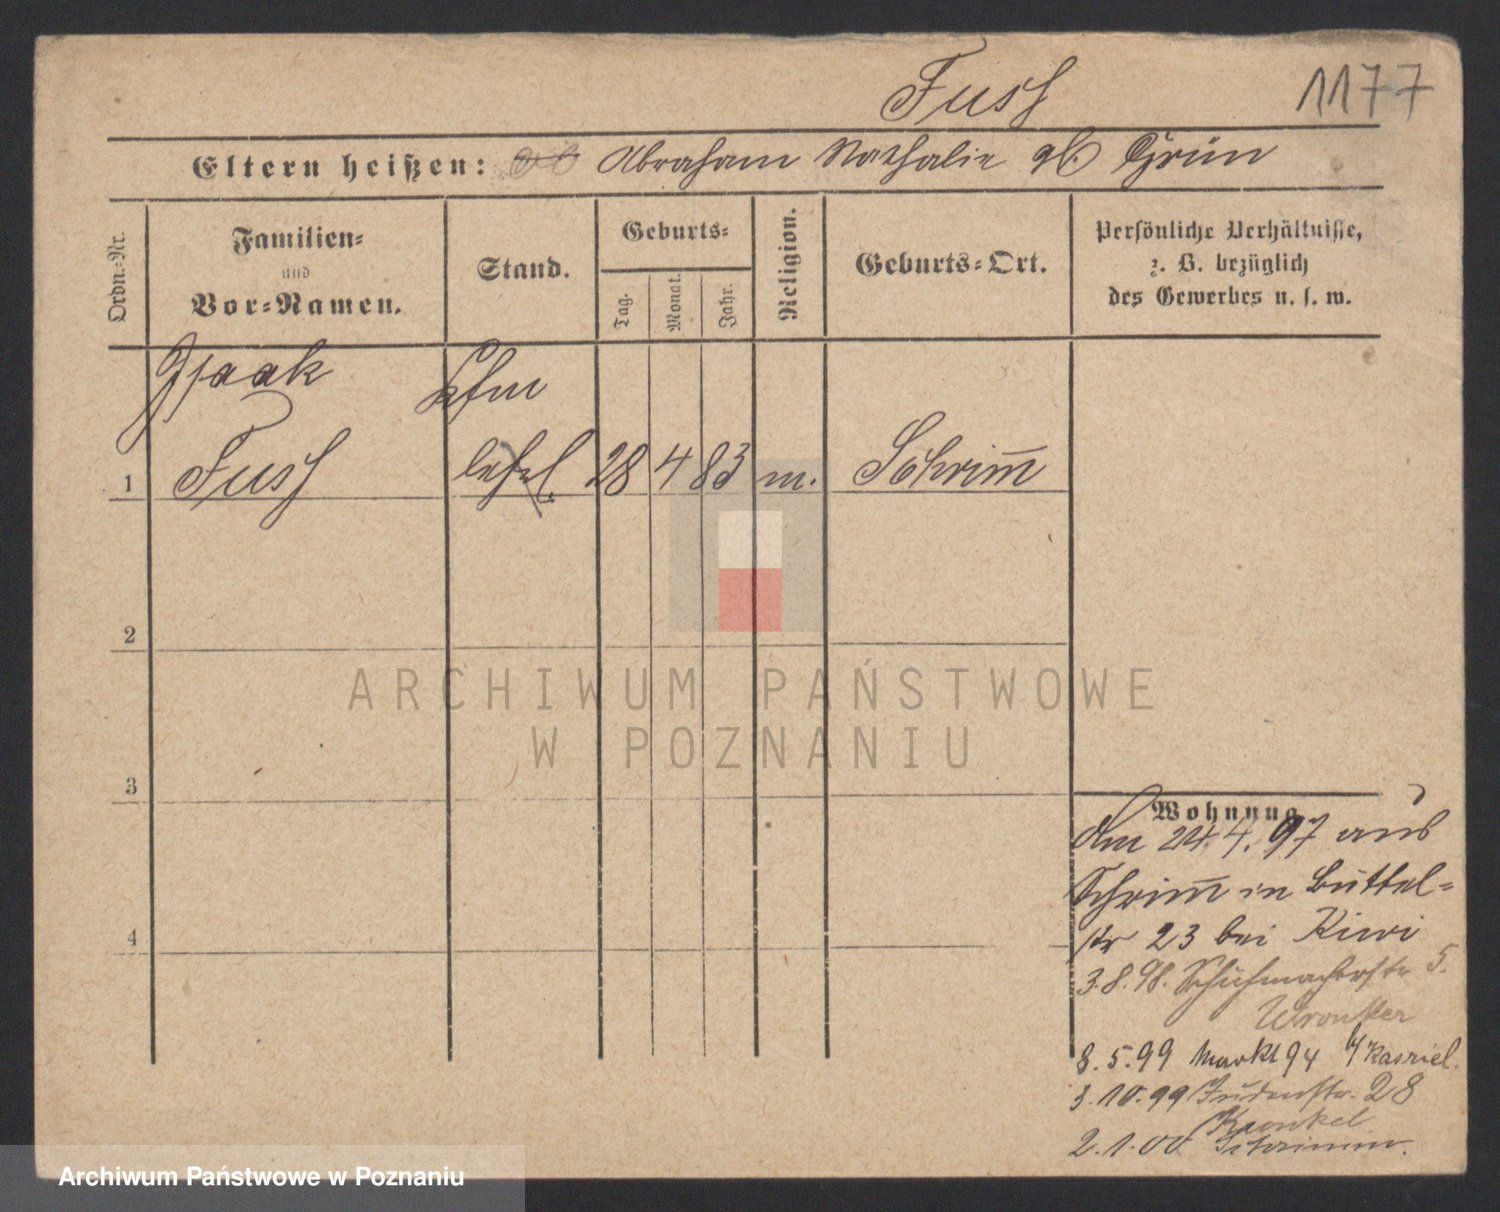 Fuss
1177
Eltern heißen: Abraham Nathalie gb Grün
Ordn.-Nr.
Familien-
und
Vor-Namen.
Stand.
Geburts-
Tag.
Monat.
Jahr.
Religion.
Geburts-Ort.
Persönliche Verhältnisse,
z. B. bezüglich
des Gewerbes u. s. w.
Isaak
Kfm
1
Fuss
28
4
83
m.
Schrim̅
2
3
4
ARCHIWUM PAŃSTWOWE
W POZNANIU
Wohnung
Am 24.4.97 aus
Schrim̅ in Büttel=
str 23 bei Kiwi
3.8.98. Schuhmacherstr 5.
Wronker
8.5.99 Markt 94 b/ Kasriel.
3.10.99 Judenstr. 28
Kronkel
2.1.00 Schrimm.
Archiwum Państwowe w Poznaniu